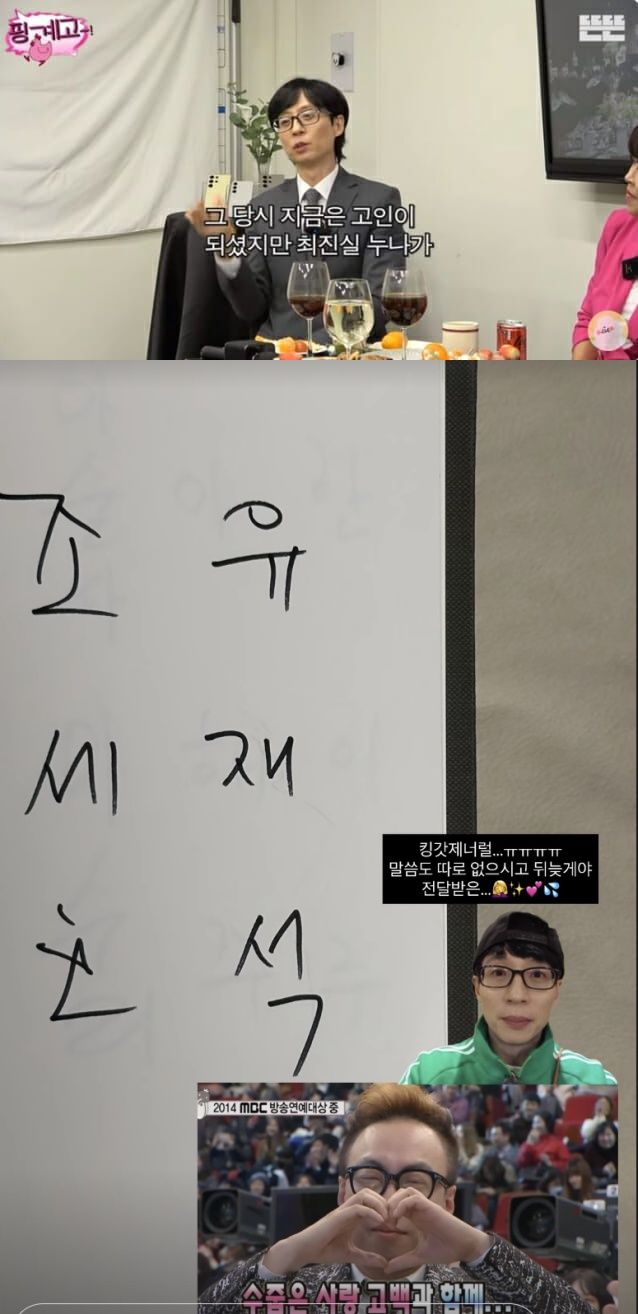 핑계고!
뜬뜬
그 당시 지금은 고인이
되셨지만 최진실 누나가
유재석
조세호
킹갓제너럴...ㅠㅠㅠㅠ
말씀도 따로 없으시고 뒤늦게야
전달받은...🙇‍♀️✨💕💦
2014 MBC 방송연예대상 중
수줍은 사랑 고백과 함께...